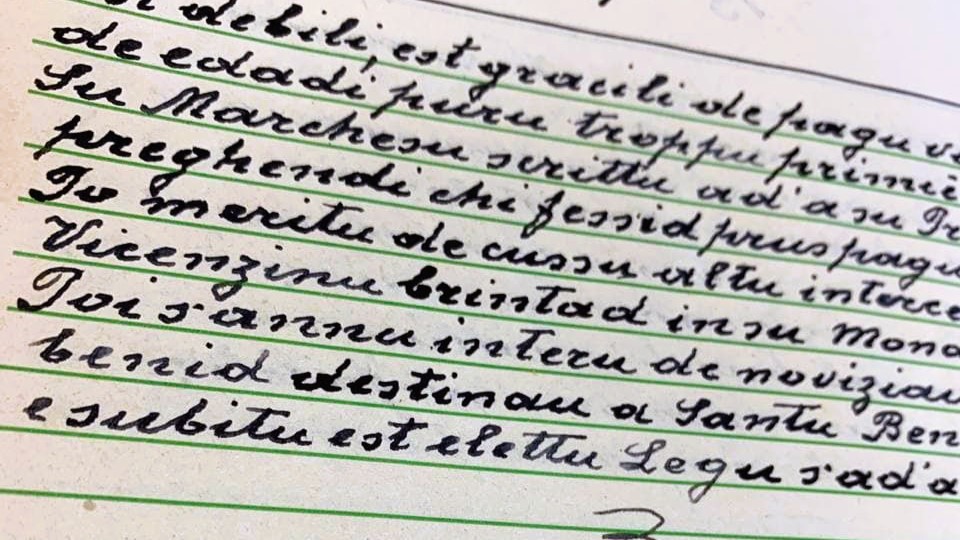 debili, est gracili de pagu
de edadi puru troppu
Su Marchesu scrittu ad'a su
preghendi chi fessid prus pagu
Po meritu de cussu altu
Vicenzinu brintad in su
Poi s'annu interu de
benid destinau a Santu
e subitu est elettu Legu s'ad'a